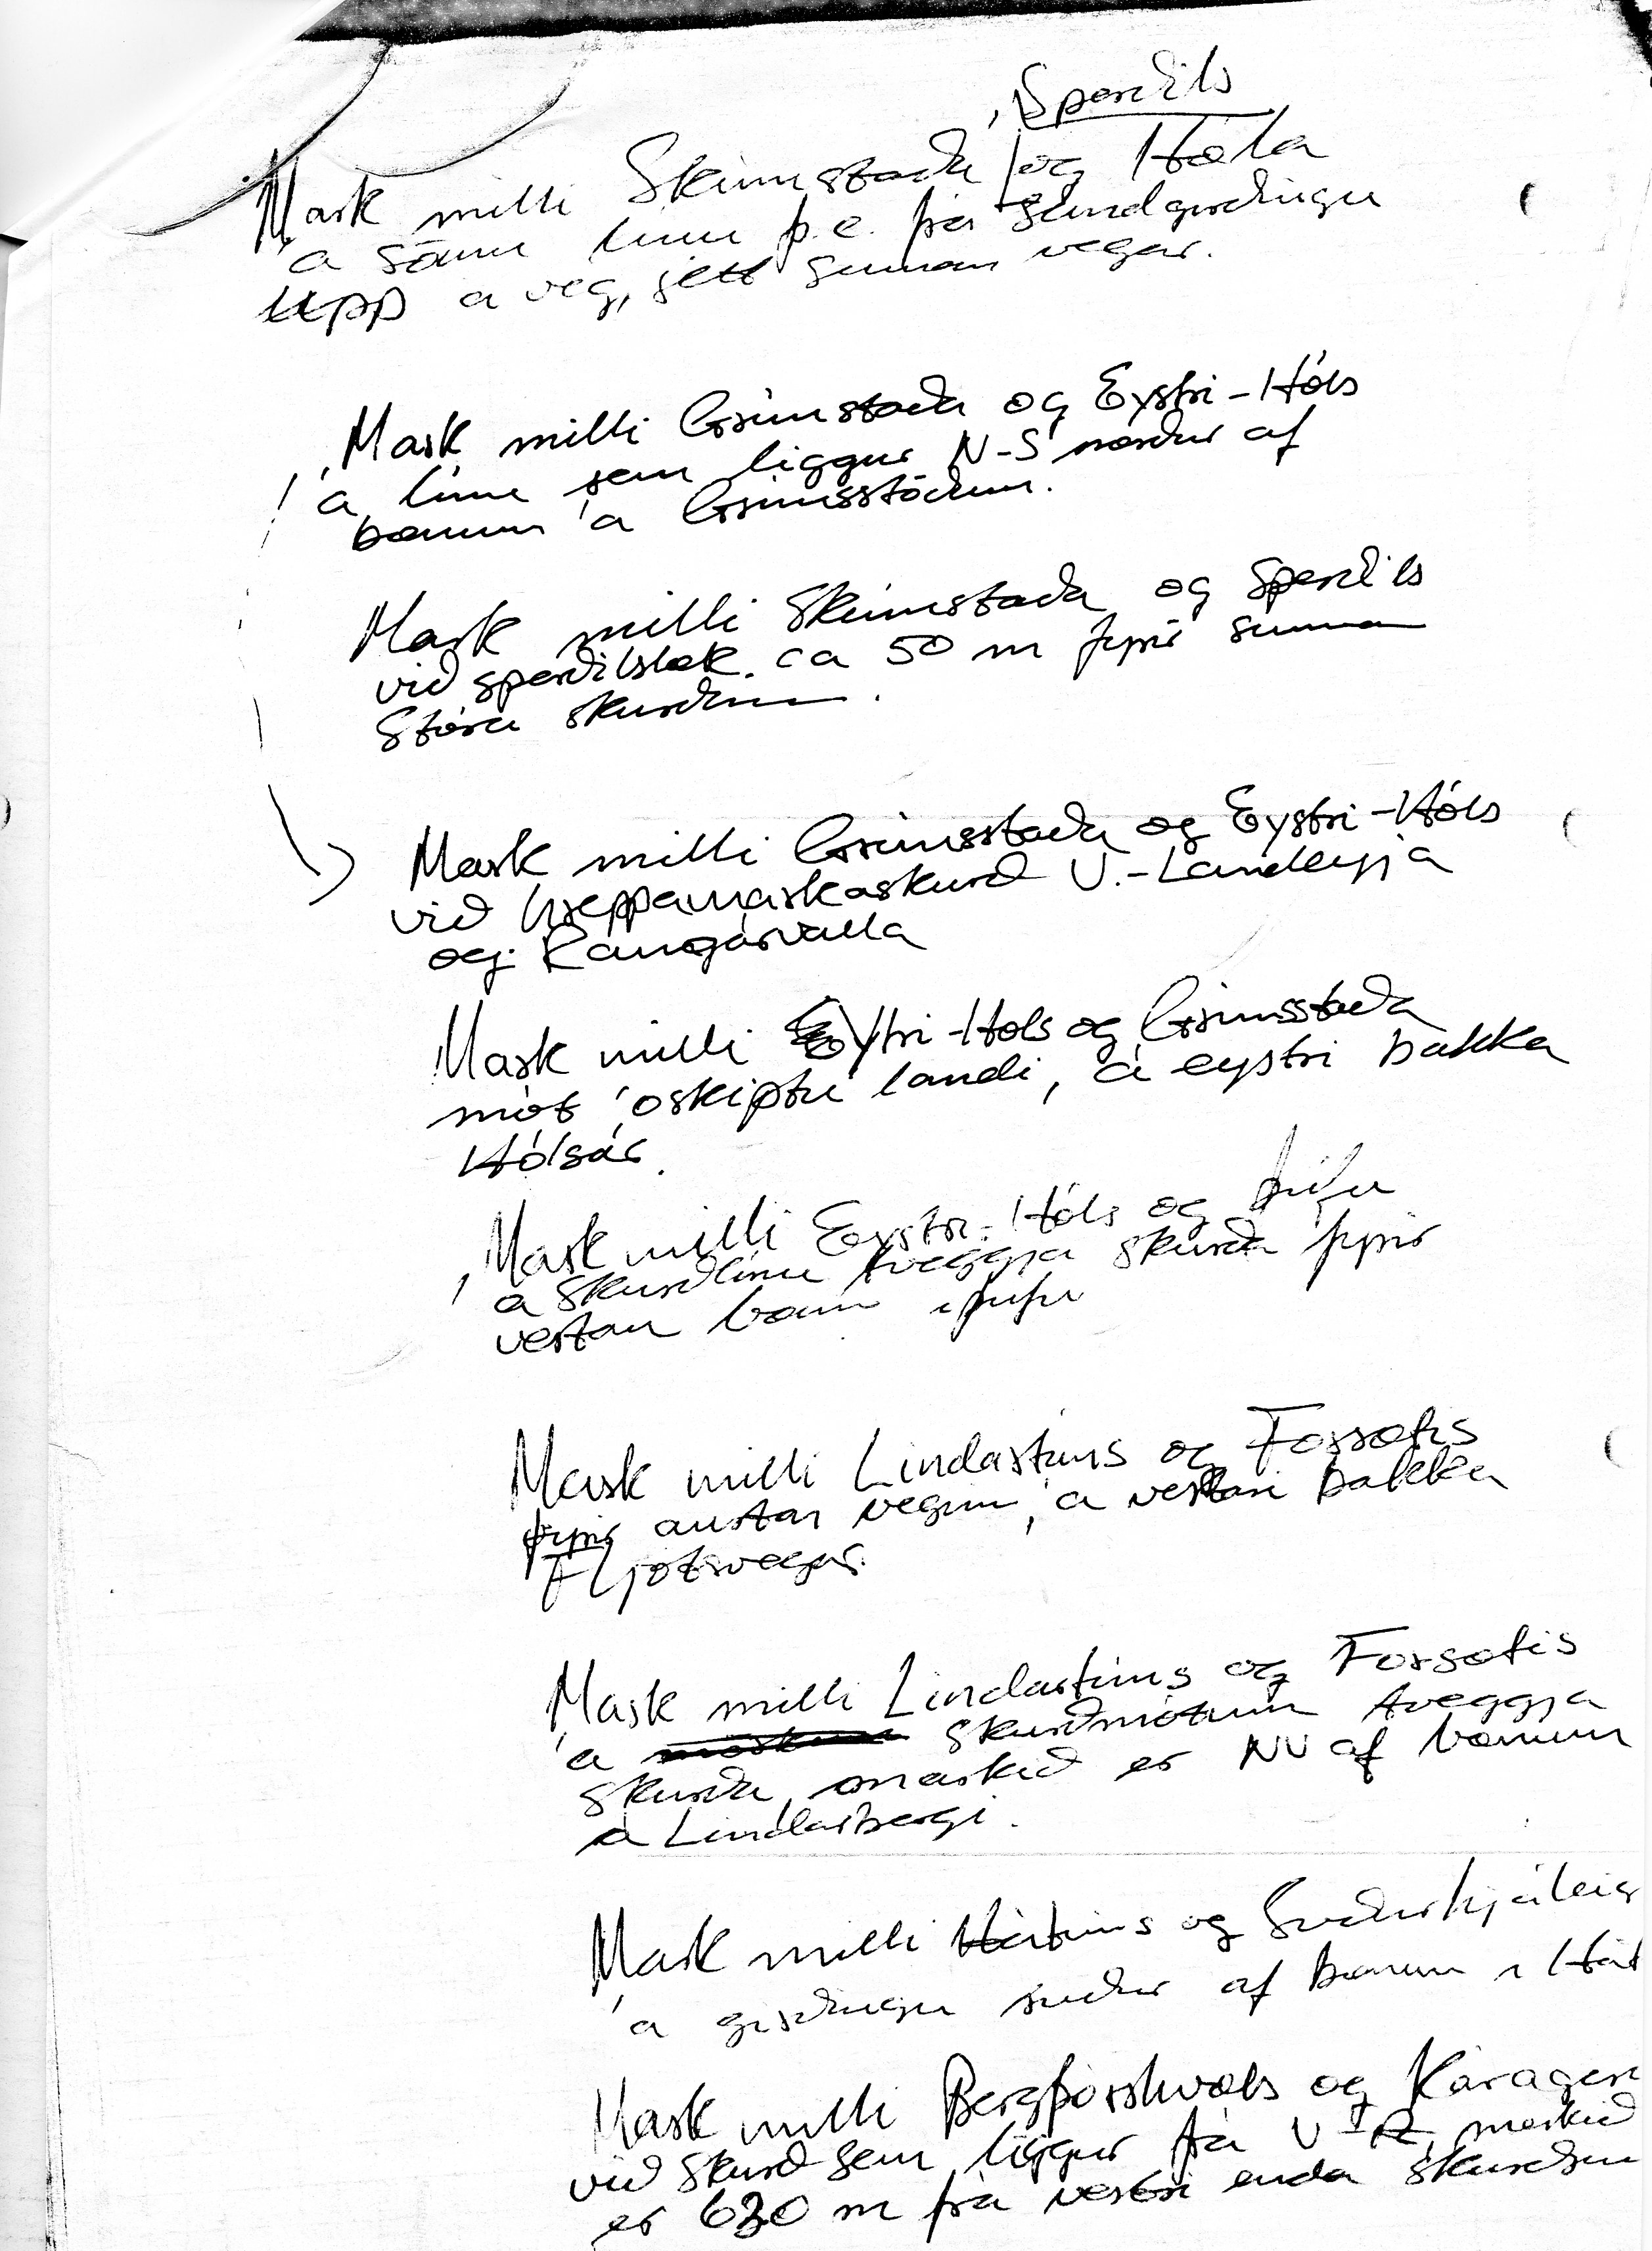 , Sperðils
Mark milli Skúmstaða og Hóla
á sömu línu þ.e. frá sandgirðingu
upp á veg, rétt sunnan vegar.
Mark milli Grímstaða og Eystri-Hóls
á línu sem liggur N-S norður af
bænum á Grímsstöðum.
Mark milli Skúmstaða og Sperðils
við sperðilslæk. ca 50 m fyrir sunnan
Stóra skurðinn.
Mark milli Grímsstaða og Eystri-Hóls
við hreppamarkaskurð V.-Landeyja
og Rangárvalla
Mark milli Ytri-Hóls og Grímsstaða
mót óskiptu landi, á eystri bakka
Hólsár.
Mark milli Eystri-Hóls og Fífu
á skurðlínu tveggja skurða fyrir
vestan bæinn í fífu
Mark milli Lindartúns og Forsætis
fyrir austan veginn, á vestari bakka
Fljótsvegar.
Mark milli Lindartúns og Forsætis
á skurðmótum tveggja
skurða, markið er NV af bænum
á Lindarbergi.
Mark milli Hátúns og Suðurhjáleig
á girðingu suður af bænum í Hát
Mark milli Bergþórshvols og Káragerð
við skurð sem liggur frá V-A, markið
er 630 m frá vestri enda skurðsin